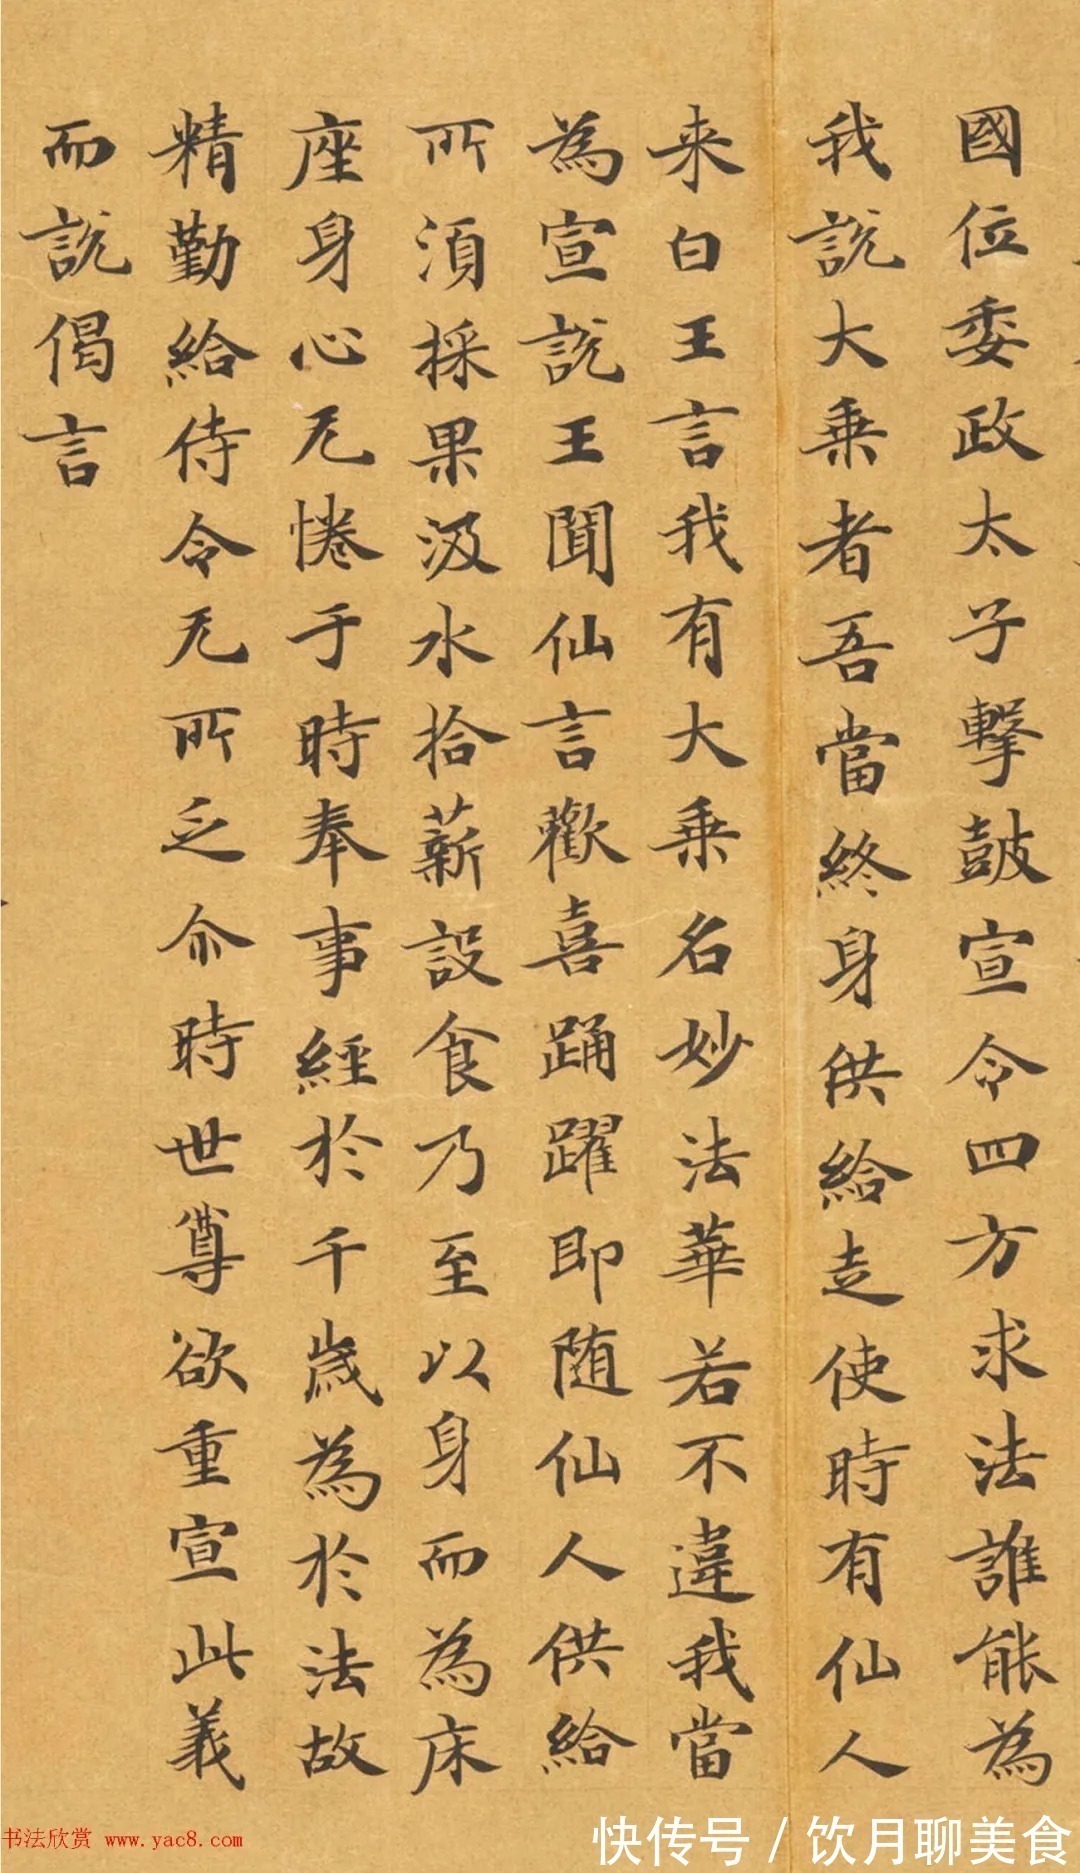 國位委政太子擊鼓宣令四方求法誰能為
我說大乗者吾當終身供給走使時有仙人
来白王言我有大乗名妙法華若不違我當
為宣說王聞仙言歡喜踊躍即随仙人供給
所須採果汲水拾薪設食乃至以身而為床
座身心无惓于時奉事經於千歲為於法故
精勤給侍令无所乏尒時世尊欲重宣此義
而說偈言
书法欣赏 www.yac8.com
快传号/饮月聊美食